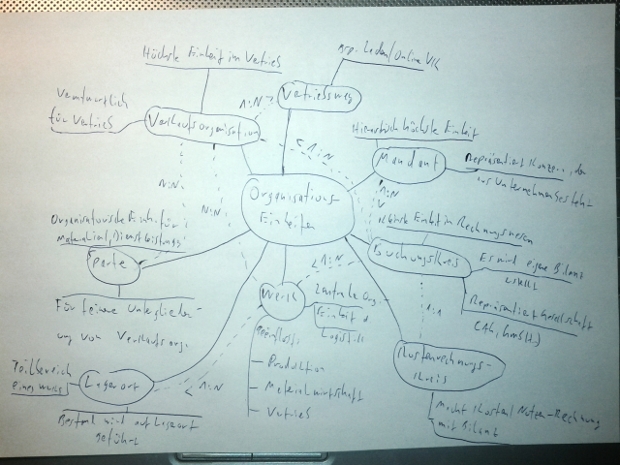 Höchste Einheit im Vertrieb
Bsp. Laden/Online VK
Verantwortlich
für Vertrieb
1:N
Vertriebsweg
Verkaufsorganisation
Hierarchisch höchste Einheit
< 1:N
Mandant
Repräsentiert Konzern, der
aus Unternehmen besteht
Organisations-
Einheiten
1:N
1:N
1:N
Einheit im Rechnungswesen
Organisatorische Einheit für
Material, Dienstleistungs
Buchungskreis
Es wird eigene Bilanz
erstellt
Sparte
< 1:N
Werk
Zentrale Org.
Einheit d.
Logistik
Repräsentiert Gesellschaft
(AG, GmbH)
1:1
Für feinere Untergliederung-
ung von Verkaufsorg.
Beeinflusst
Produktion
Materialwirtschaft
Vertrieb
Kostenrechnungs-
kreis
Teilbereich
eines Werks
Lagerort
< 1:N
Bestand wird auf Lagerort
geführt
Macht Kosten/Nutzen-Rechnung
mit Bilanz